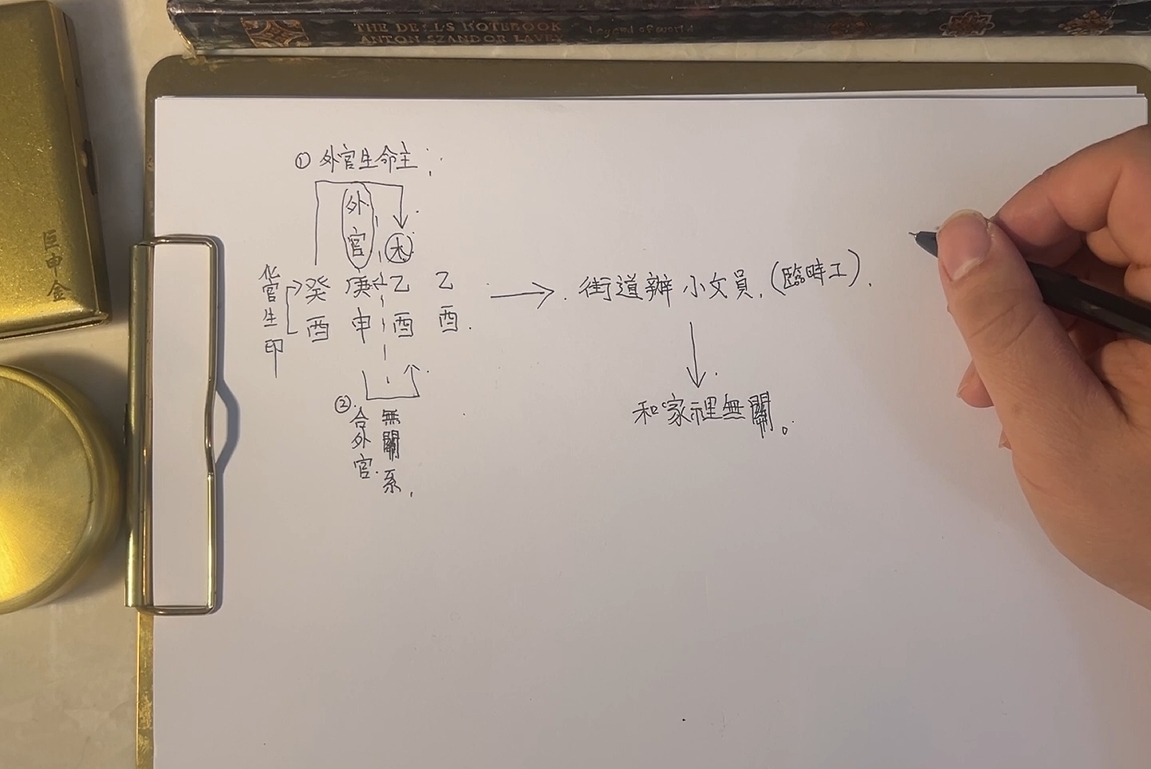 THE DEVIL'S NOTEBOOK
ANTON SZANDOR LAVEY
巨申金
①外官生命主;
外官
木
化官生印
癸庚乙乙
酉申酉酉.
街道辦小文員.(臨時工).
②合外官.
無關系,
和家裡無關。